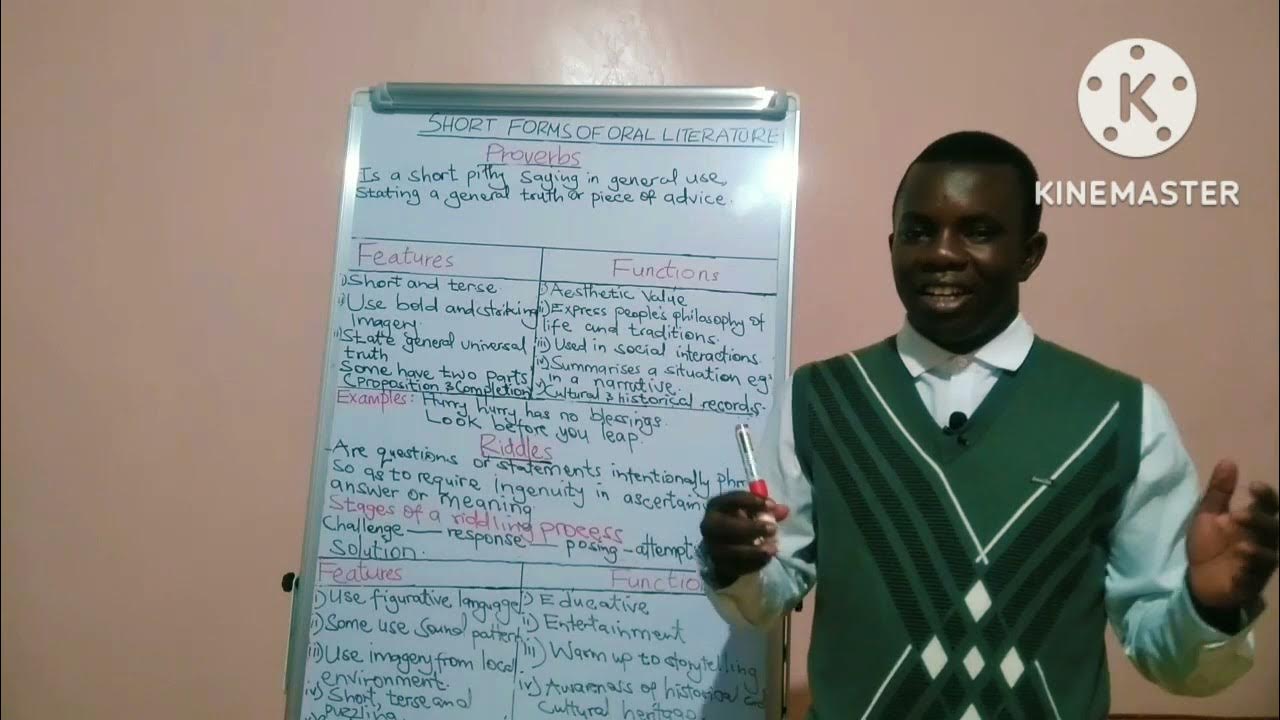 SHORT FORMS OF ORAL LITERATURE
Proverbs
Is a short pithy saying in general use,
stating a general truth or piece of advice.
Features
i) Short and terse
ii) Use bold and striking
Imagery.
iii) State general universal
truth
Some have two parts
(Proposition & Completion
Functions
i) Aesthetic Value
ii) Express people's philosophy of
life and traditions.
iii) Used in social interactions.
iv) Summarises a situation eg.
in a narrative.
v) Cultural & historical records.
Examples: Hurry hurry has no blessings.
Look before you leap.
Riddles
- Are questions or statements intentionally phr
so as to require Ingenuity in ascertaini
answer or meaning
Stages of a riddling process
Challenge — response — posing – attempt
Solution.
Features
i) Use figurative language
ii) Some use Sound pattern
iii) Use imagery from local
environment.
iv) Short, terse and
puzzling
Functio
i) Educative
ii) Entertainment
iii) Warm up to storytelling
iv) Awareness of historical and
cultural heritage
K
KINEMASTER